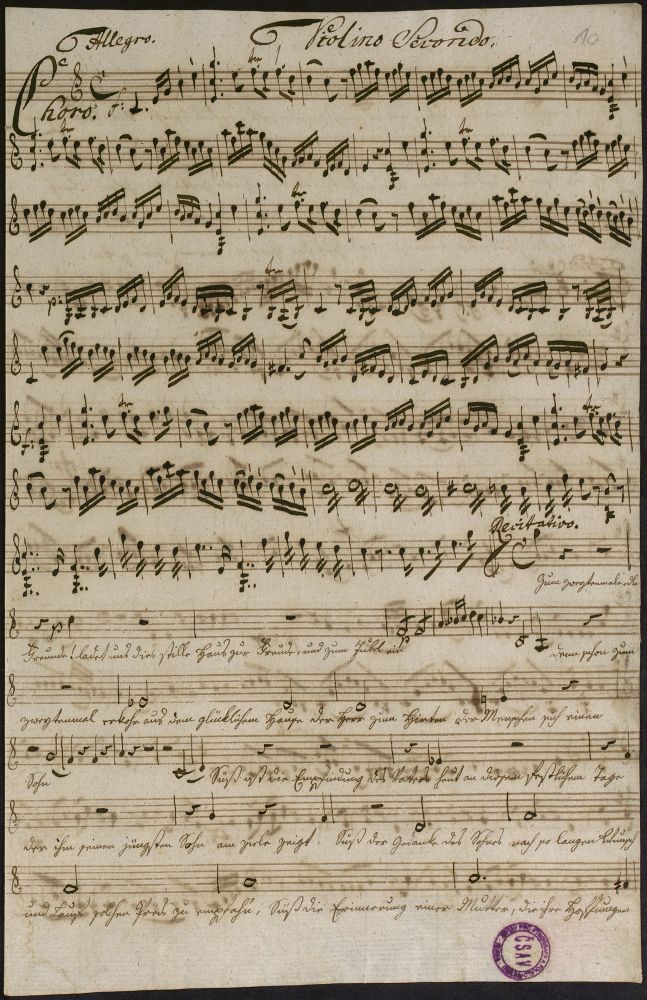 Allegro. Violino Secondo. 10
Choro. f:
tr
tr tr
tr tr
p: tr
tr tr
Recitativo.
Zum zweytenmale edle
p
Freunde! ladet uns dies stille Haus zur Freude, und zum Jubel ein denn schon zum
zweytenmal erkohr aus dem glücklichem Hause der Herr zum Hirten der Menschen sich einen
Sohn Süß ist die Empfindung des Vaters heut an diesem festlichem Tage
der ihm seinen jüngsten Sohn am Ziele zeigt. Süß der Gedanke des Sohnes nach so langen
und solchen Preis zu empfahn, Süß die Erinnerung einer Mutter, die ihre Hoffnungen
ČSAV